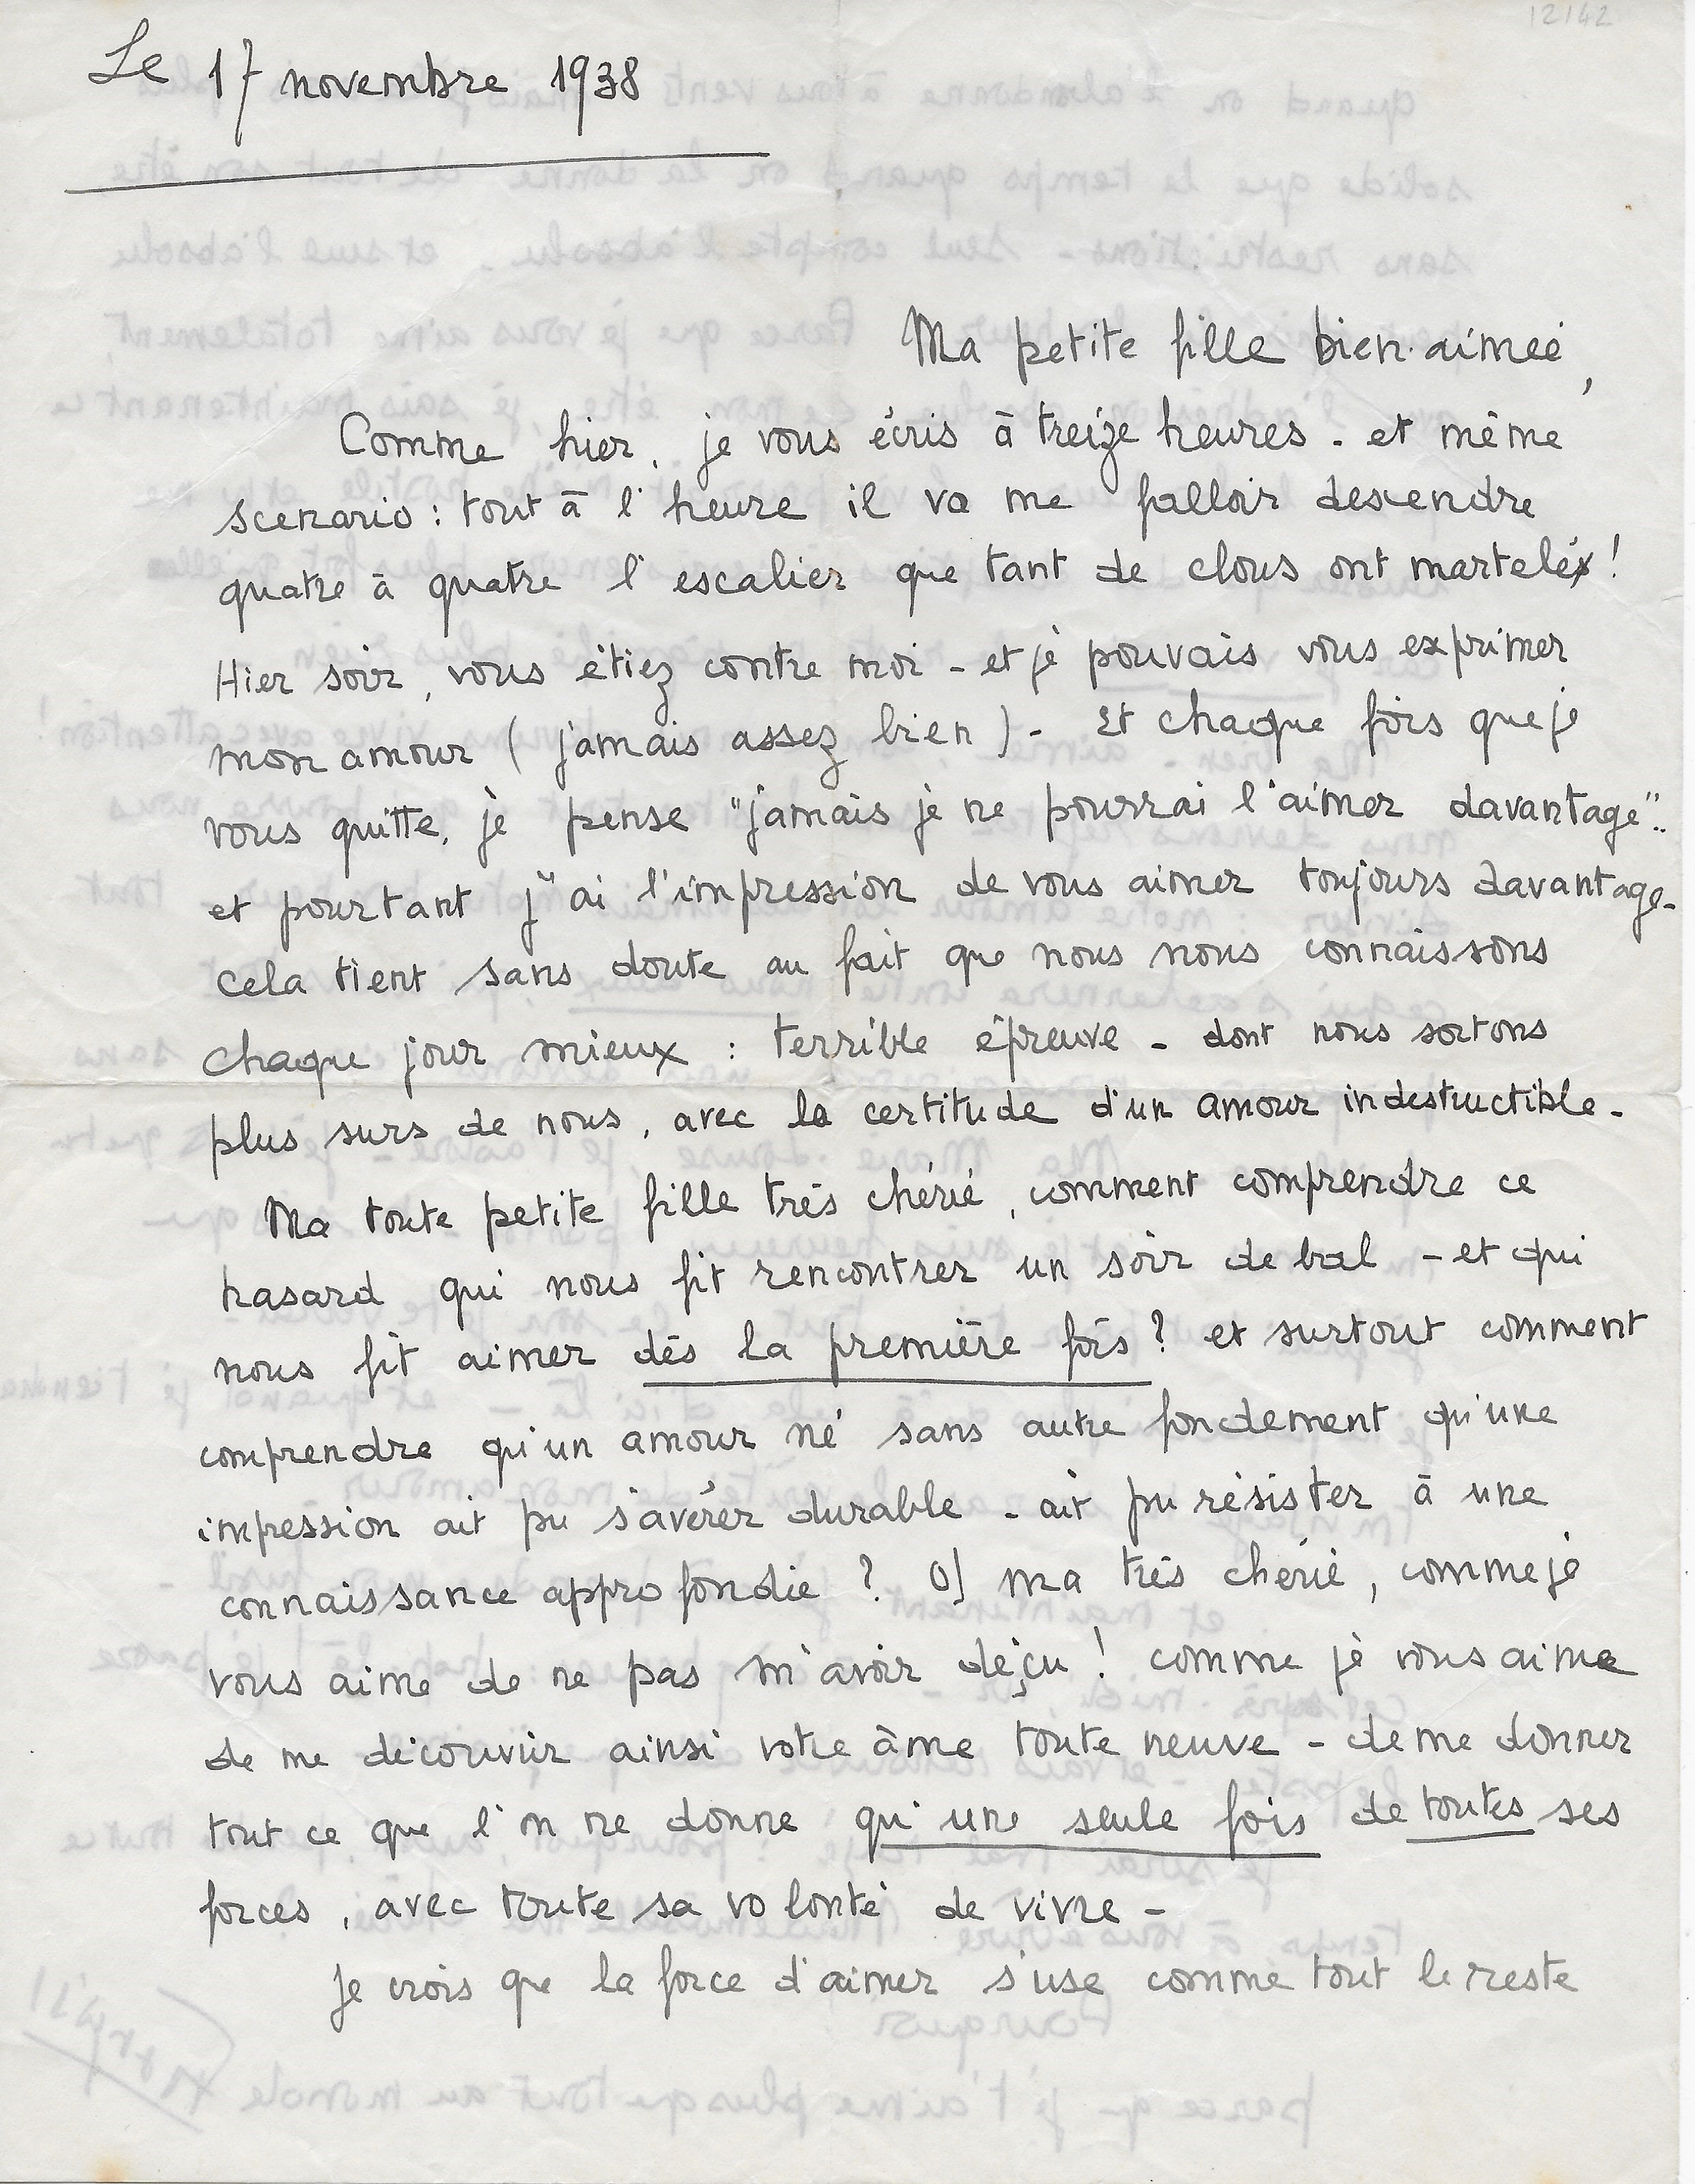 12142
Le 17 novembre 1938
Ma petite fille bien-aimée,
Comme hier, je vous écris à treize heures - et même
scenario : tout à l'heure il va me falloir descendre
quatre à quatre l'escalier que tant de clous ont martelé !
Hier soir, vous étiez contre moi - et je pouvais vous exprimer
mon amour (jamais assez bien) - Et chaque fois que je
vous quitte, je pense "jamais je ne pourrai l'aimer davantage"..
et pourtant j'ai l'impression de vous aimer toujours davantage -
cela tient sans doute au fait que nous nous connaissons
chaque jour mieux : terrible épreuve - dont nous sortons
plus surs de nous, avec la certitude d'un amour indestructible -
Ma toute petite fille très chérie, comment comprendre ce
hasard qui nous fit rencontrer un soir de bal - et qui
nous fit aimer dès la première fois ? et surtout comment
comprendre qu'un amour né sans autre fondement qu'une
impression ait pu s'avérer durable - ait pu résister à une
connaissance approfondie ? ma très chérie, comme je
vous aime de ne pas m'avoir déçu ! comme je vous aime
de me découvrir ainsi votre âme toute neuve - de me donner
tout ce que l'on ne donne qu'une seule fois de toutes ses
forces, avec toute sa volonté de vivre -
Je crois que la force d'aimer s'use comme tout le reste